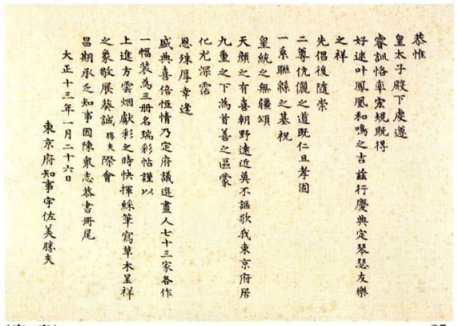 恭惟
皇太子殿下虔遵
睿訓恪率宏規既得
好逑叶鳳凰和鳴之吉茲行慶典定琴瑟友樂
之祥
先倡後隨崇
二尊伉儷之道既仁且孝固
一系聯緜之基祝
皇統之無疆頌
天顔之有喜朝野遠近莫不謳歌我東京府居
九重之下為首善之區蒙
化尤深霑
恩殊厚幸逢
盛典喜倍恒情乃定府議選畫人七十三家各作
一幅装為三冊名瑞彩帖謹以
上進方雲烟獻彩之時快揮綵筆寫草木呈祥
之象敬展葵誠勝夫際會
昌期承乏知事因陳衆志恭書冊尾
大正十三年一月二十六日
東京府知事宇佐美勝夫